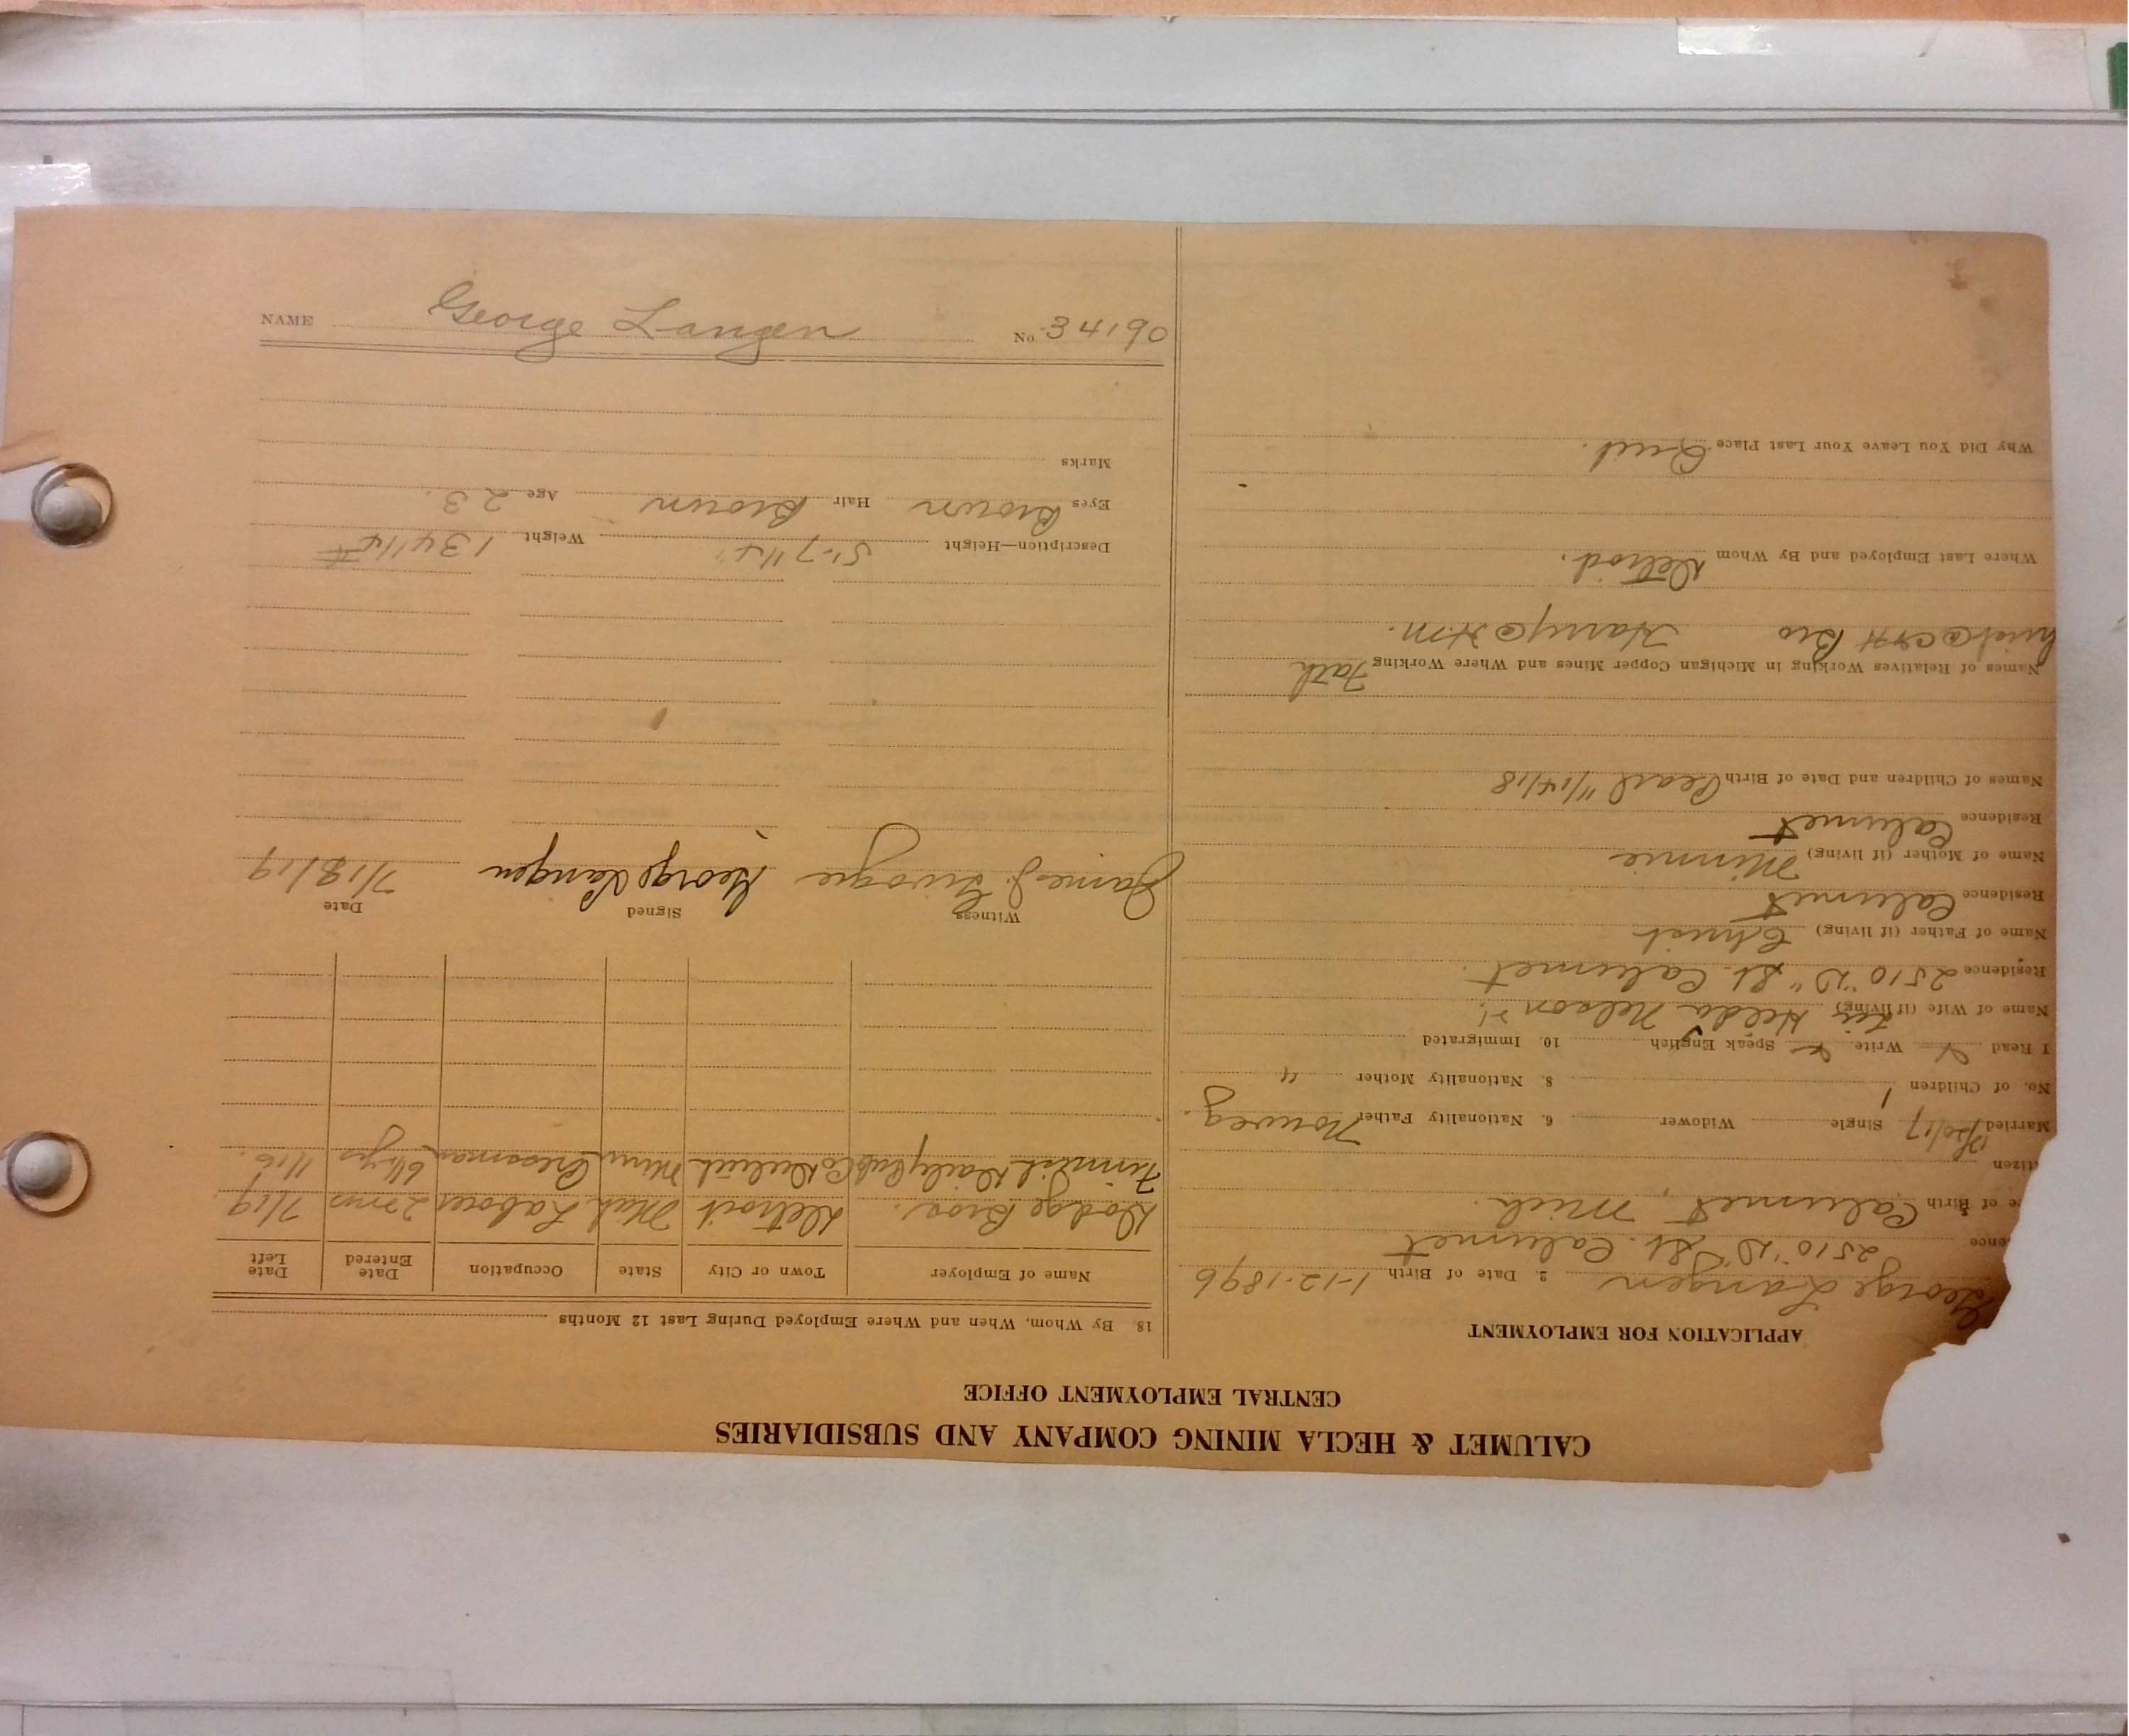 CALUMET & HECLA MINING COMPANY AND SUBSIDIARIES
CENTRAL EMPLOYMENT OFFICE
APPLICATION FOR EMPLOYMENT
George Langen 2. Date of Birth 1-12-1896
ence 2510 "D" St. Calumet
ce of Birth Calumet, Mich.
itizen
Married 17 Single Widower 6. Nationality Father Norweg.
No. of Children 1 8. Nationality Mother "
I Read Write Speak English 10. Immigrated
Name of Wife (if living) Hilda Nelson 21
Residence 2510 "D" St. Calumet.
Name of Father (if living) Christ
Residence Calumet
Name of Mother (if living) Minnie
Residence Calumet
Names of Children and Date of Birth Pearl 11/14/18
Names of Relatives Working in Michigan Copper Mines and Where Working Fath
hrist @ C&H Bro Harry @ H.M.
Where Last Employed and By Whom Detroit.
Why Did You Leave Your Last Place Quit.
18. By Whom, When and Where Employed During Last 12 Months
Name of Employer Town or City State Occupation Date Entered Date Left
Dodge Bros. Detroit Mich Laborer 2 mos 7/19
Finnish Daily Pub Co Duluth Minn Pressman 6½ yrs
Witness Signed Date
James J. George Langen 7/18/19
Description—Height 5'-7 1/4" Weight 134 1/4 #
Eyes Brown Hair Brown Age 23.
Marks
NAME George Langen No. 34190